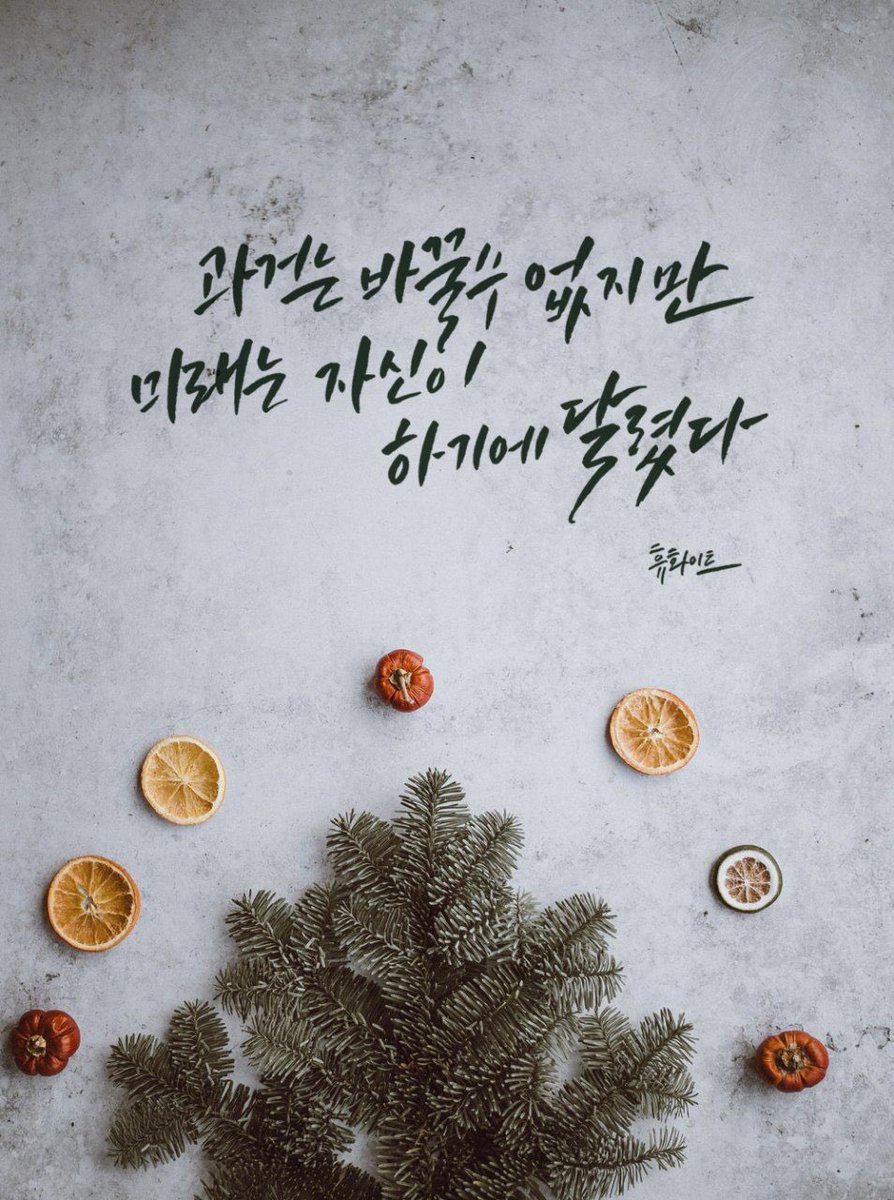 과거는 바꿀수 없지만
미래는 자신이
하기에 달렸다
휴화이트